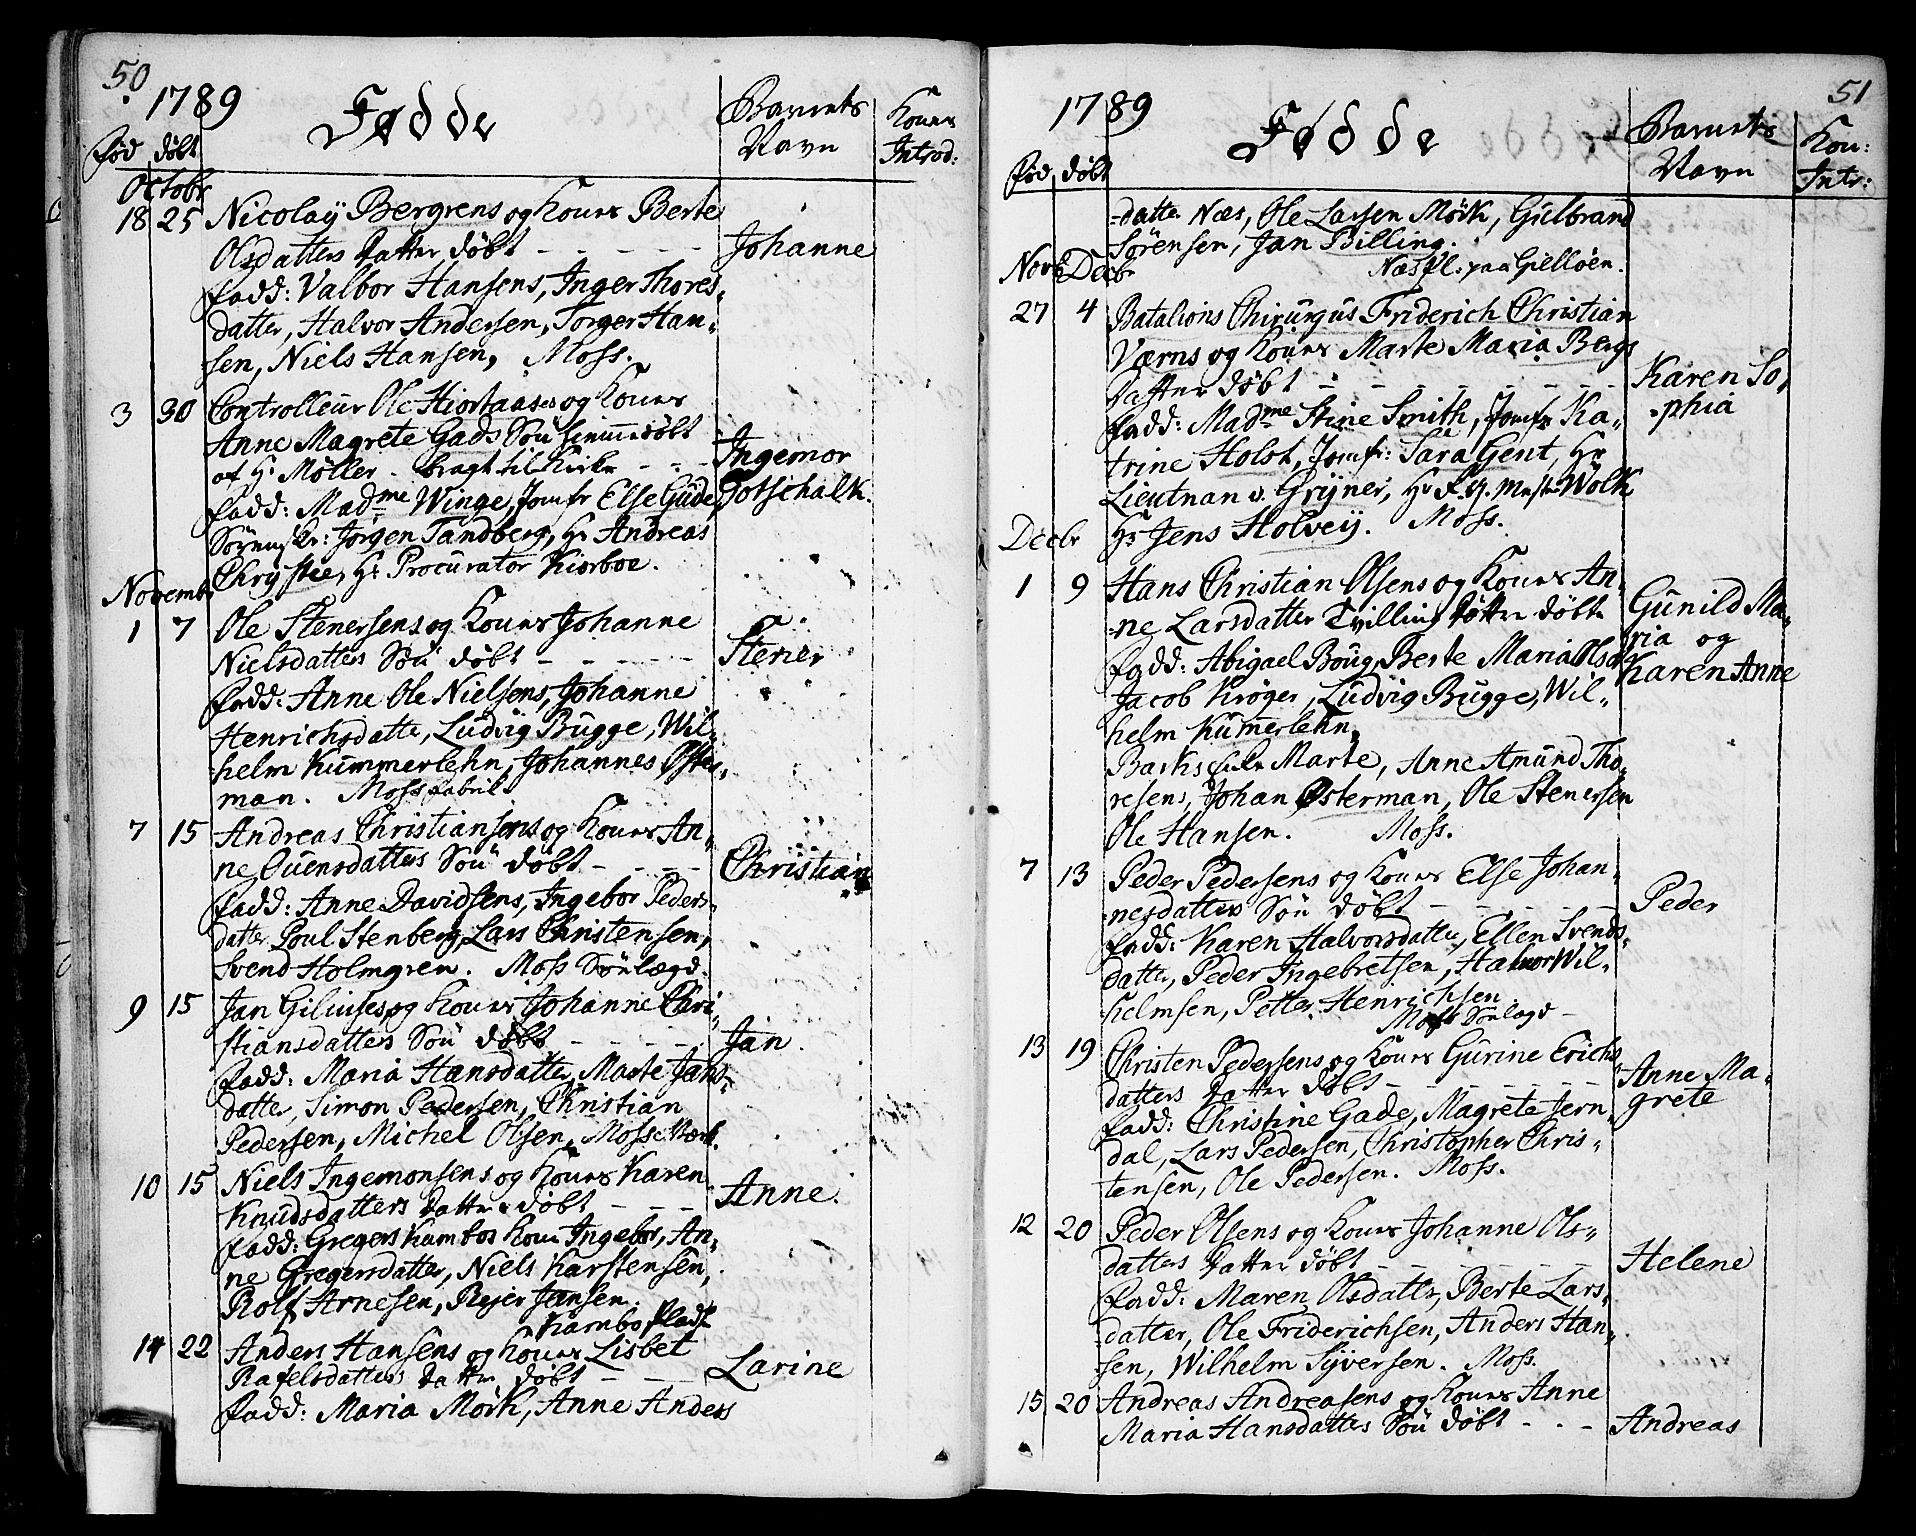 50
1789 Fødde Barnets Navn Konens Introd:
fød døbt
Octobr
18 25 Nicolaÿ Bergrens og Kones Berte
Olsdatters datter døbt - - - - - Johanne
fadd: Valbor Hansens, Inger Thores-
datter, Halvor Andersen, Torger Han-
sen, Niels Hansen, Moss.
3 30 Controlleur Ole Hiortaases og Kones
Anne Magrete Gads Søn hiemmedøbt
af Hr Møller - bragt til Kirke - - - Ingemor
fadd: Madme Winge, Jomfr Else Gude, Gotschalk.
Sørenskr: Jørgen Tandberg, Hr Andreas
Chrystie, Hr Procurator Kiørboe.
Novembr
1 7 Ole Stenersens og Kones Johanne
Nielsdatters Søn døbt - - - - - Stener
fadd: Anne Ole Nielsens, Johanne
Henrichsdatte, Ludvig Bugge, Wil-
helm Kummerlehn, Johannes Øster-
man. Moss fabrik
7 15 Andreas Christiansens og Kones An-
ne Ouensdatters Søn døbt - - - - Christian
fadd: Anne Davidsens, Ingebor Peders-
datter Poul Stenberg, Lars Christensen,
Svend Holmgren. Moss Sønlægd.
9 15 Jan Giliuses og Kones Johanne Chri-
stiansdatters Søn døbt - - - - Jan.
fadd: Maria Hansdatter, Marte Jans-
datter, Simon Pedersen, Christian
Pedersen, Michel Olsen, Mosse Værk.
10 15 Niels Ingemonsens og Kones Karen
Knudsdatters datter døbt - - - Anne.
fadd: Gregers Kambos kone Ingebor, An-
ne Gregersdatter, Niels Karstensen,
Rolf Arnesen, Rejer Jansen.
Kambo Plads
14 22 Anders Hansens og Kones Lisbet
Rafelsdatters datter døbt - - - Larine
fadd: Maria Mörk, Anne Anders
51
1789 Fødde Barnets Navn Kon: Intr:
fød døbt
-datter Næs, Ole Larsen Mörk, Gulbrand
Sörensen, Jan Billing.
Novb Decbr Næs pl. paa Gielløen.
27 4 Batalions Chirurgus Friderich Christian
Værns og Kones Marte Maria Bergs
datter døbt - - - - - - Karen So-
fadd: Madme Stine Smith, Jomfr Ka- -phia
trine Holst, Jomfr: Sara Gent, Hr
Lieutnan v. Grÿner, Hr Wolk
Decbr Hr Jens Holveÿ. Moss.
1 9 Hans Christian Olsens og Kones An-
-ne Larsdatter Tvilling døttre døbte Gunild Ma-
fadd: Abigael Boug, Berte Maria Olsd. ria og
Jacob Krøger, Ludvig Bugge, Wil- Karen Anne
helm Kumerlehn,
Marte, Anne Amund Tho-
resens, Johan Østerman, Ole Stenersen
Ole Hansen. Moss.
7 13 Peder Pedersens og Kones Else Johan-
nesdatters Søn døbt - - - - - Peder
fadd: Karen Halvorsdatter, Ellen Svends-
datter, Peder Ingebretsen, Halvor Wil-
helmsen, Petter Henrichsen
Moss Sönlægd -
13 19 Christen Pedersens og Kones Gurine Erichs-
datters datter døbt - - - - - Anne Ma-
fadd: Christine Gade, Magrete Jern- grete
dal, Lars Pedersen, Christopher Chris-
tensen, Ole Pedersen. Moss.
12 20 Peder Olsens og Kones Johanne Ols-
datters datter døbt - - - - - Helene
fadd: Maren Olsdatter, Berte Lars-
-datter, Ole Friderichsen, Anders Han-
sen, Wilhelm Syversen. Moss.
15 20 Andreas Andreasens og Kones Anne
Maria Hansdatters Søn døbt - - - Andreas